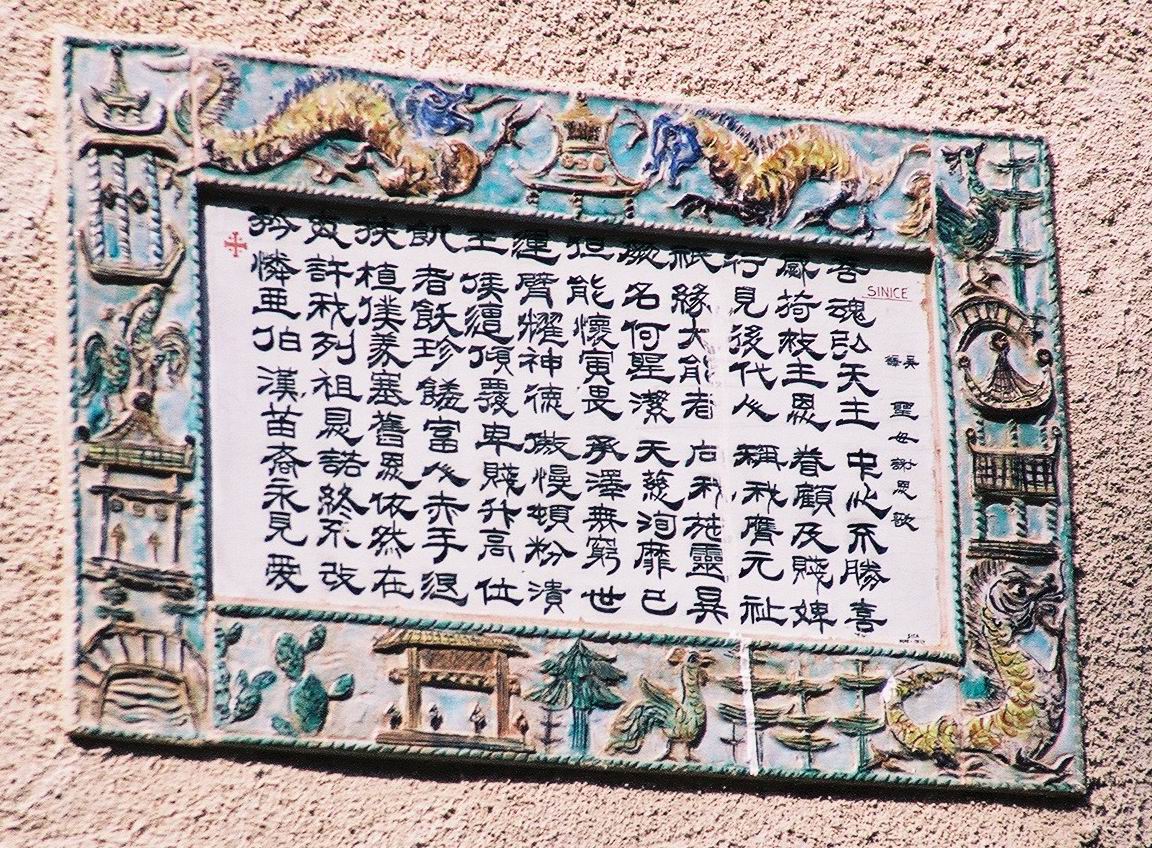 SINICE
吳譯 聖母謝恩歌
吾魂弘天主 中心不勝喜
感荷救主恩 眷顧及賤婢
行見後代人 稱我膺元祉
祇緣大能者 向我施靈異
厥名何聖潔 天慈洵靡已
但能懷寅畏 承澤無窮世
運臂耀神德 傲慢頓粉潰
王侯遭傾覆 卑賤升高位
飢者飫珍饈 富人赤手退
扶植僕義塞 舊恩依然在
爰許我列祖 恩諾終不改
矜憐亞伯漢 苗裔永見愛